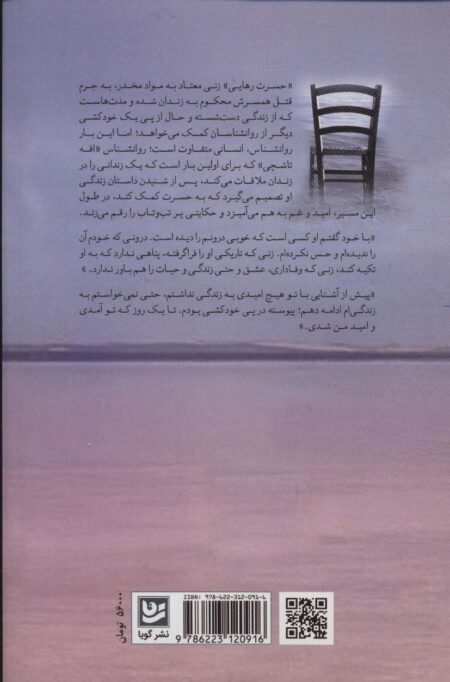 «حسرت رهایی» زنی معتاد به مواد مخدر، به جرم
قتل همسرش محکوم به زندان شده و مدت‌هاست
که از زندگی دست‌شسته و حال از پی یک خودکشی
دیگر از روانشناسان کمک می‌خواهد؛ اما این بار
روانشناس، انسانی متفاوت است؛ روانشناس «افه
تاشچی» که برای اولین بار است که یک زندانی را در
زندان ملاقات می‌کند، پس از شنیدن داستان زندگی
او تصمیم می‌گیرد که به حسرت کمک کند، در طول
این مسیر، امید و غم به هم می‌آمیزد و حکایتی پر تب‌وتاب را رقم می‌زند.
«با خود گفتم او کسی است که خوبی درونم را دیده است. درونی که خودم آن
را ندیده‌ام و حس نکرده‌ام. زنی که تاریکی او را فراگرفته، پناهی ندارد که به او
تکیه کند، زنی که وفاداری، عشق و حتی زندگی و حیات را هم باور ندارد.»
«پیش از آشنایی با تو هیچ امیدی به زندگی نداشتم، حتی نمی‌خواستم به
زندگی‌ام ادامه دهم؛ پیوسته در پی خودکشی بودم. تا یک روز که تو آمدی
و امید من شدی.»
ISBN: 978-622-312-091-6
9 786223 120916
نشر گویا
۵۶۰۰۰ تومان